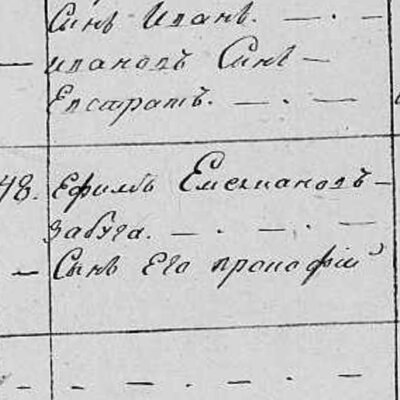 Сынъ Иванъ. — . —
— ивановъ Сынъ —
Евстратъ. — . —
48. Ефимъ Емельяновъ —
Забуга. — . — . —
— Сынъ Его прокофій
- - — . — . —